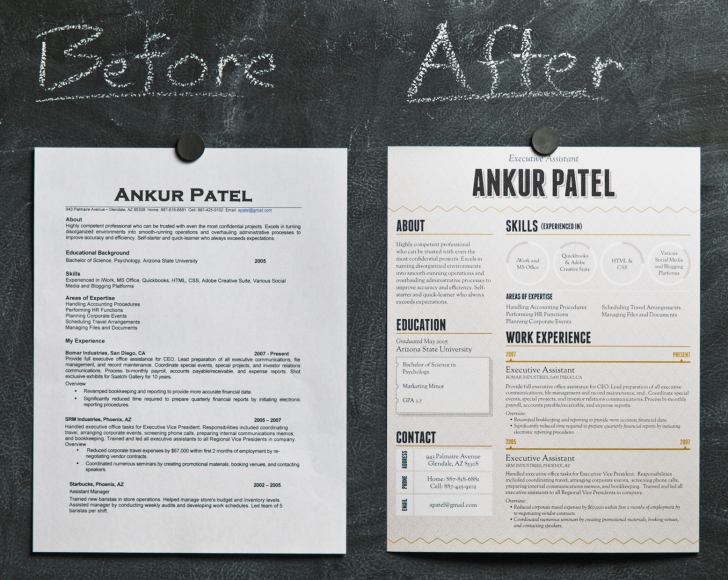 Before
After
ANKUR PATEL
About
Highly competent professional who can be trusted with even the most confidential projects. Excels in turning
disorganized environments into smooth-running operations and overhauling administrative processes to
improve accuracy and efficiency. Self-starter and quick-learner who always exceeds expectations.
Educational Background
Bachelor of Science, Psychology, Arizona State University 2005
Skills
Experienced in iWork, MS Office, Quickbooks, HTML, CSS, Adobe Creative Suite, Various Social
Media and Blogging Platforms
Areas of Expertise
Handling Accounting Procedures
Performing HR Functions
Planning Corporate Events
Scheduling Travel Arrangements
Managing Files and Documents
My Experience
Bomar Industries, San Diego, CA 2007 - Present
Provide full executive office assistance for CEO. Lead preparation of all executive communications, file
management, and record maintenance. Coordinate special events, special projects, and investor relations
communications. Process bi-monthly payroll, accounts payable/receivable, and expense reports. Shot
exclusive exhibits for Saatchi Gallery for 10 years.
Overview
• Revamped bookkeeping and reporting to provide more accurate financial date.
• Significantly reduced time required to prepare quarterly financial reports by initiating electronic
reporting procedures.
SRM Industries, Phoenix, AZ 2005 – 2007
Handled executive office tasks for Executive Vice President. Responsibilities included coordinating
travel, arranging corporate events, screening phone calls, preparing internal communications memos,
and bookkeeping. Trained and led all executive assistants to all Regional Vice Presidents in company.
Overview
• Reduced corporate travel expenses by $67,000 within first 2 months of employment by re-
negotiating vendor contracts.
• Coordinated numerous seminars by creating promotional materials, booking venues, and contacting
speakers.
Starbucks, Phoenix, AZ 2002 – 2005
Assistant Manager
Trained new baristas in store operations. Helped manage store's budget and inventory levels.
Assisted manager by conducting weekly audits and developing work schedules. Led team of 5
baristas per shift.
Executive Assistant
ANKUR PATEL
ABOUT
Highly competent professional
who can be trusted with even the
most confidential projects. Excels in
turning disorganized environments
into smooth-running operations and
overhauling administrative processes to
improve accuracy and efficiency. Self-
starter and quick-learner who always
exceeds expectations.
EDUCATION
Graduated May 2005
Arizona State University
Bachelor of Science in
Psychology
Marketing Minor
GPA 3.7
CONTACT
ADDRESS
943 Palmaire Avenue
Glendale, AZ
PHONE
Home:
Cell:
EMAIL
apatel@gmail.com
SKILLS (EXPERIENCED IN)
iWork and
MS Office
Quickbooks
& Adobe
Creative Suite
HTML &
CSS
Various
Social Media
and Blogging
Platforms
AREAS OF EXPERTISE
Handling Accounting Procedures
Performing HR Functions
Planning Corporate Events
Scheduling Travel Arrangements
Managing Files and Documents
WORK EXPERIENCE
2007 PRESENT
Executive Assistant
BOMAR INDUSTRIES, SAN DIEGO, CA
Provide full executive office assistance for CEO. Lead preparation of all executive
communications, file management and record maintenance, and. Coordinate special
events, special projects, and investor relations communications. Process bi-monthly
payroll, accounts payable/receivable, and expense reports.
Overview:
• Revamped bookkeeping and reporting to provide more accurate financial date.
• Significantly reduced time required to prepare quarterly financial reports by initiating
electronic reporting procedures.
2005 2007
Executive Assistant
SRM INDUSTRIES, PHOENIX, AZ
Handled executive office tasks for Executive Vice President. Responsibilities
included coordinating travel, arranging corporate events, screening phone calls,
preparing internal communications memos, and bookkeeping. Trained and led all
executive assistants to all Regional Vice Presidents in company.
Overview:
• Reduced corporate travel expenses by within first 2 months of employment by
re-negotiating vendor contracts.
• Coordinated numerous seminars by creating promotional materials, booking venues,
and contacting speakers.